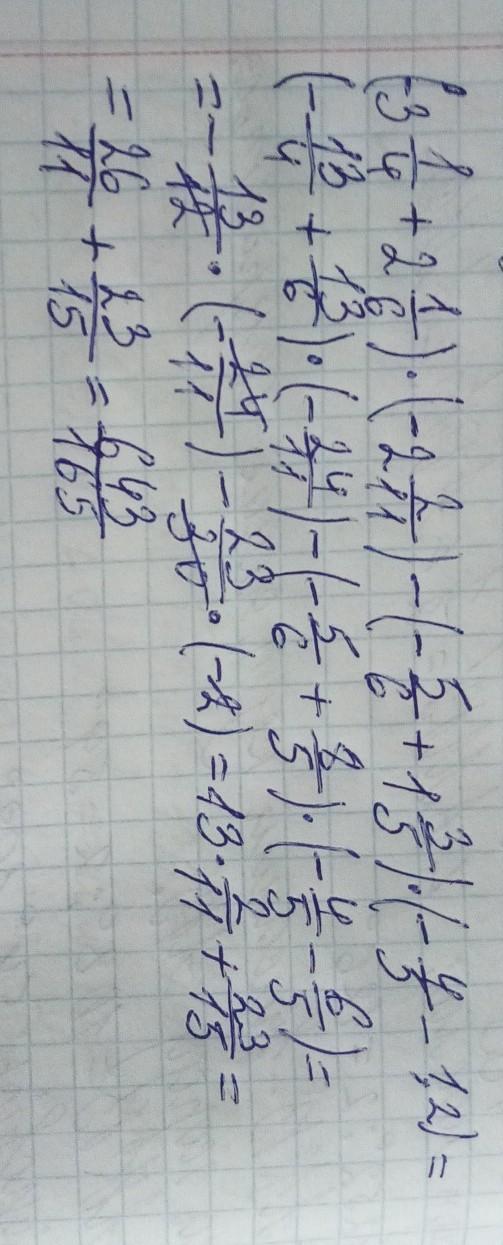 (-3 1/4 + 2 1/6) · (-2 2/11) - (-5/6 + 1 3/5) · (-4/5 - 1,2) =
(-13/4 + 13/6) · (-24/11) - (-5/6 + 8/5) · (-4/5 - 6/5) =
= -13/12 · (-24/11) - 23/30 · (-2) = 13 · 2/11 + 23/15 =
= 26/11 + 23/15 = 643/165